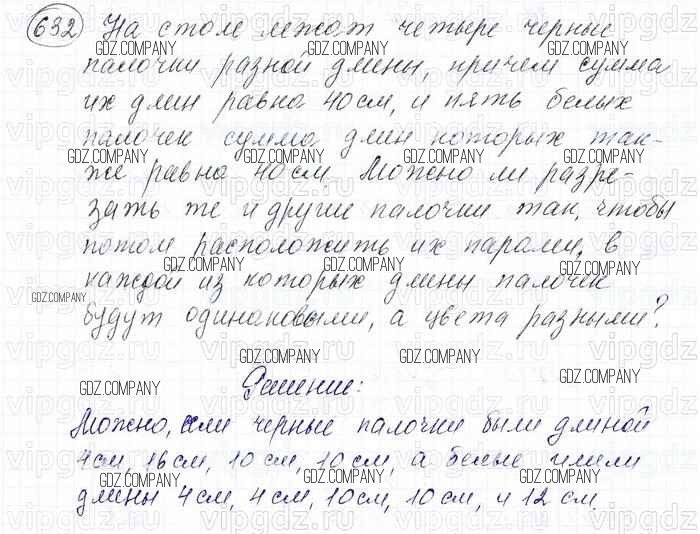 632 На столе лежат четыре черные
палочки разной длины, причем сумма
их длин равна 40 см, и пять белых
палочек сумма длин которых так-
же равна 40 см. Можно ли разре-
зать те и другие палочки так, чтобы
потом расположить их парами, в
каждой из которых длины палочек
будут одинаковыми, а цвета разными?
Решение:
Можно, если черные палочки были длиной
4 см, 16 см, 10 см, 10 см, а белые имели
длины 4 см, 4 см, 10 см, 10 см, и 12 см.
GDZ.COMPANY
vipgdz.ru